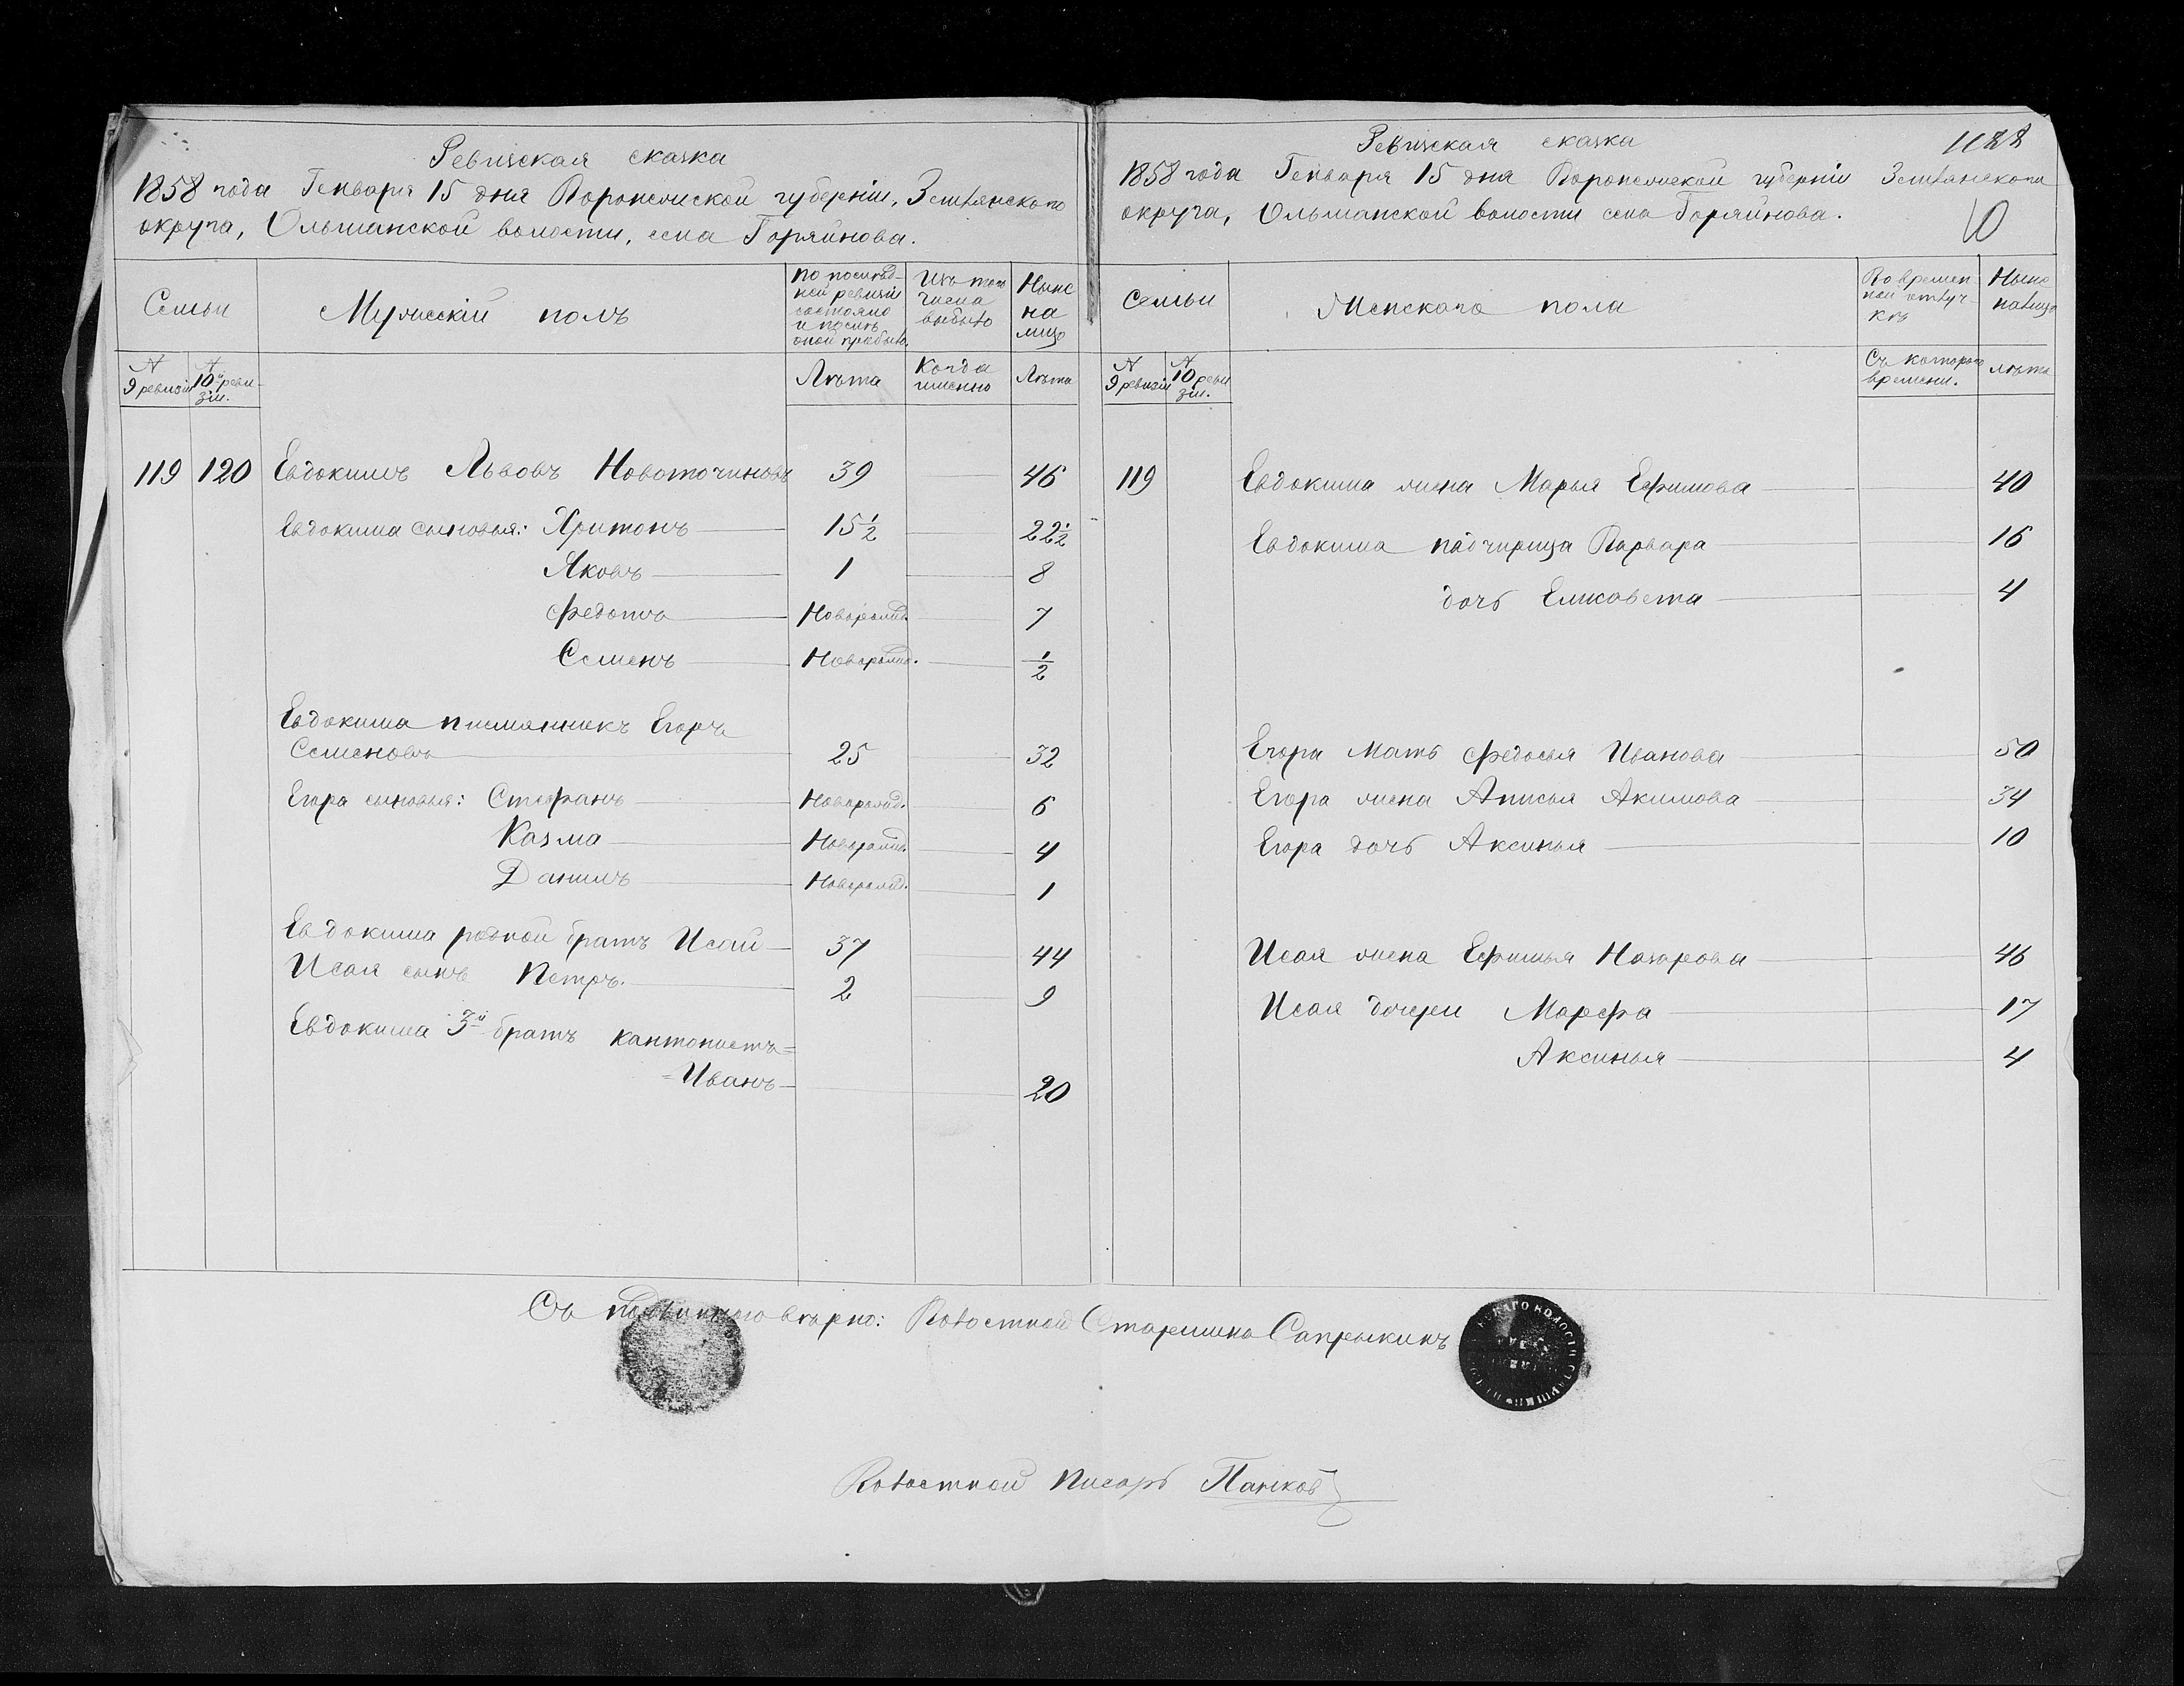 Ревизская сказка
1858 года Генваря 15 дня Воронежской губерніи, Землянскаго
округа, Ольшанской волости, села Горяйнова.
Семьи
Мужескій полъ
По послѣд-
ней ревизіи
состояло
и послѣ
оной прибыло.
Изъ того
числа
выбыло
Ныне
на
лицо
№
9 ревизіи
№
10й реви-
зіи.
Лѣта
Когда
именно
Лѣта
119 120 Евдокимъ Львовъ Новоточиновъ 39 46
Евдокима сыновья: Хритонъ 15½ 22½
Яковъ 1 8
Федотъ Новорожд. 7
Семенъ Новорожд. ½
Евдокима племянникъ Егоръ
Семеновъ 25 32
Егора сыновья: Стефанъ Новорожд. 6
Казма Новорожд. 4
Данилъ Новорожд. 1
Евдокима родной братъ Исай 37 44
Исая сынъ Петръ. 2 9
Евдокима 3й братъ кантонистъ=
=Иванъ 20
Ревизская сказка
1858 года Генваря 15 дня Воронежской губерніи Землянскаго
округа, Ольшанской волости села Горяйнова.
10
Семьи
Женскаго пола
Во времен
ной отлуч-
кѣ
Ныне
налицо
№
9 ревизіи
№
10 реви
зіи.
Съ котораго
времени.
Лѣта
119 Евдокима жена Марья Ефимова 40
Евдокима падчирица Варвара 16
дочь Елисавета 4
Егора Мать Федосья Иванова 50
Егора жена Анисья Акимова 34
Егора дочь Аксинья 10
Исая жена Ефимья Назарова 46
Исая дочери Марфа 17
Аксинья 4
Съ подлиннымъ вѣрно: Волостной Старшина Сапрыкинъ
Волостной Писарь Панков